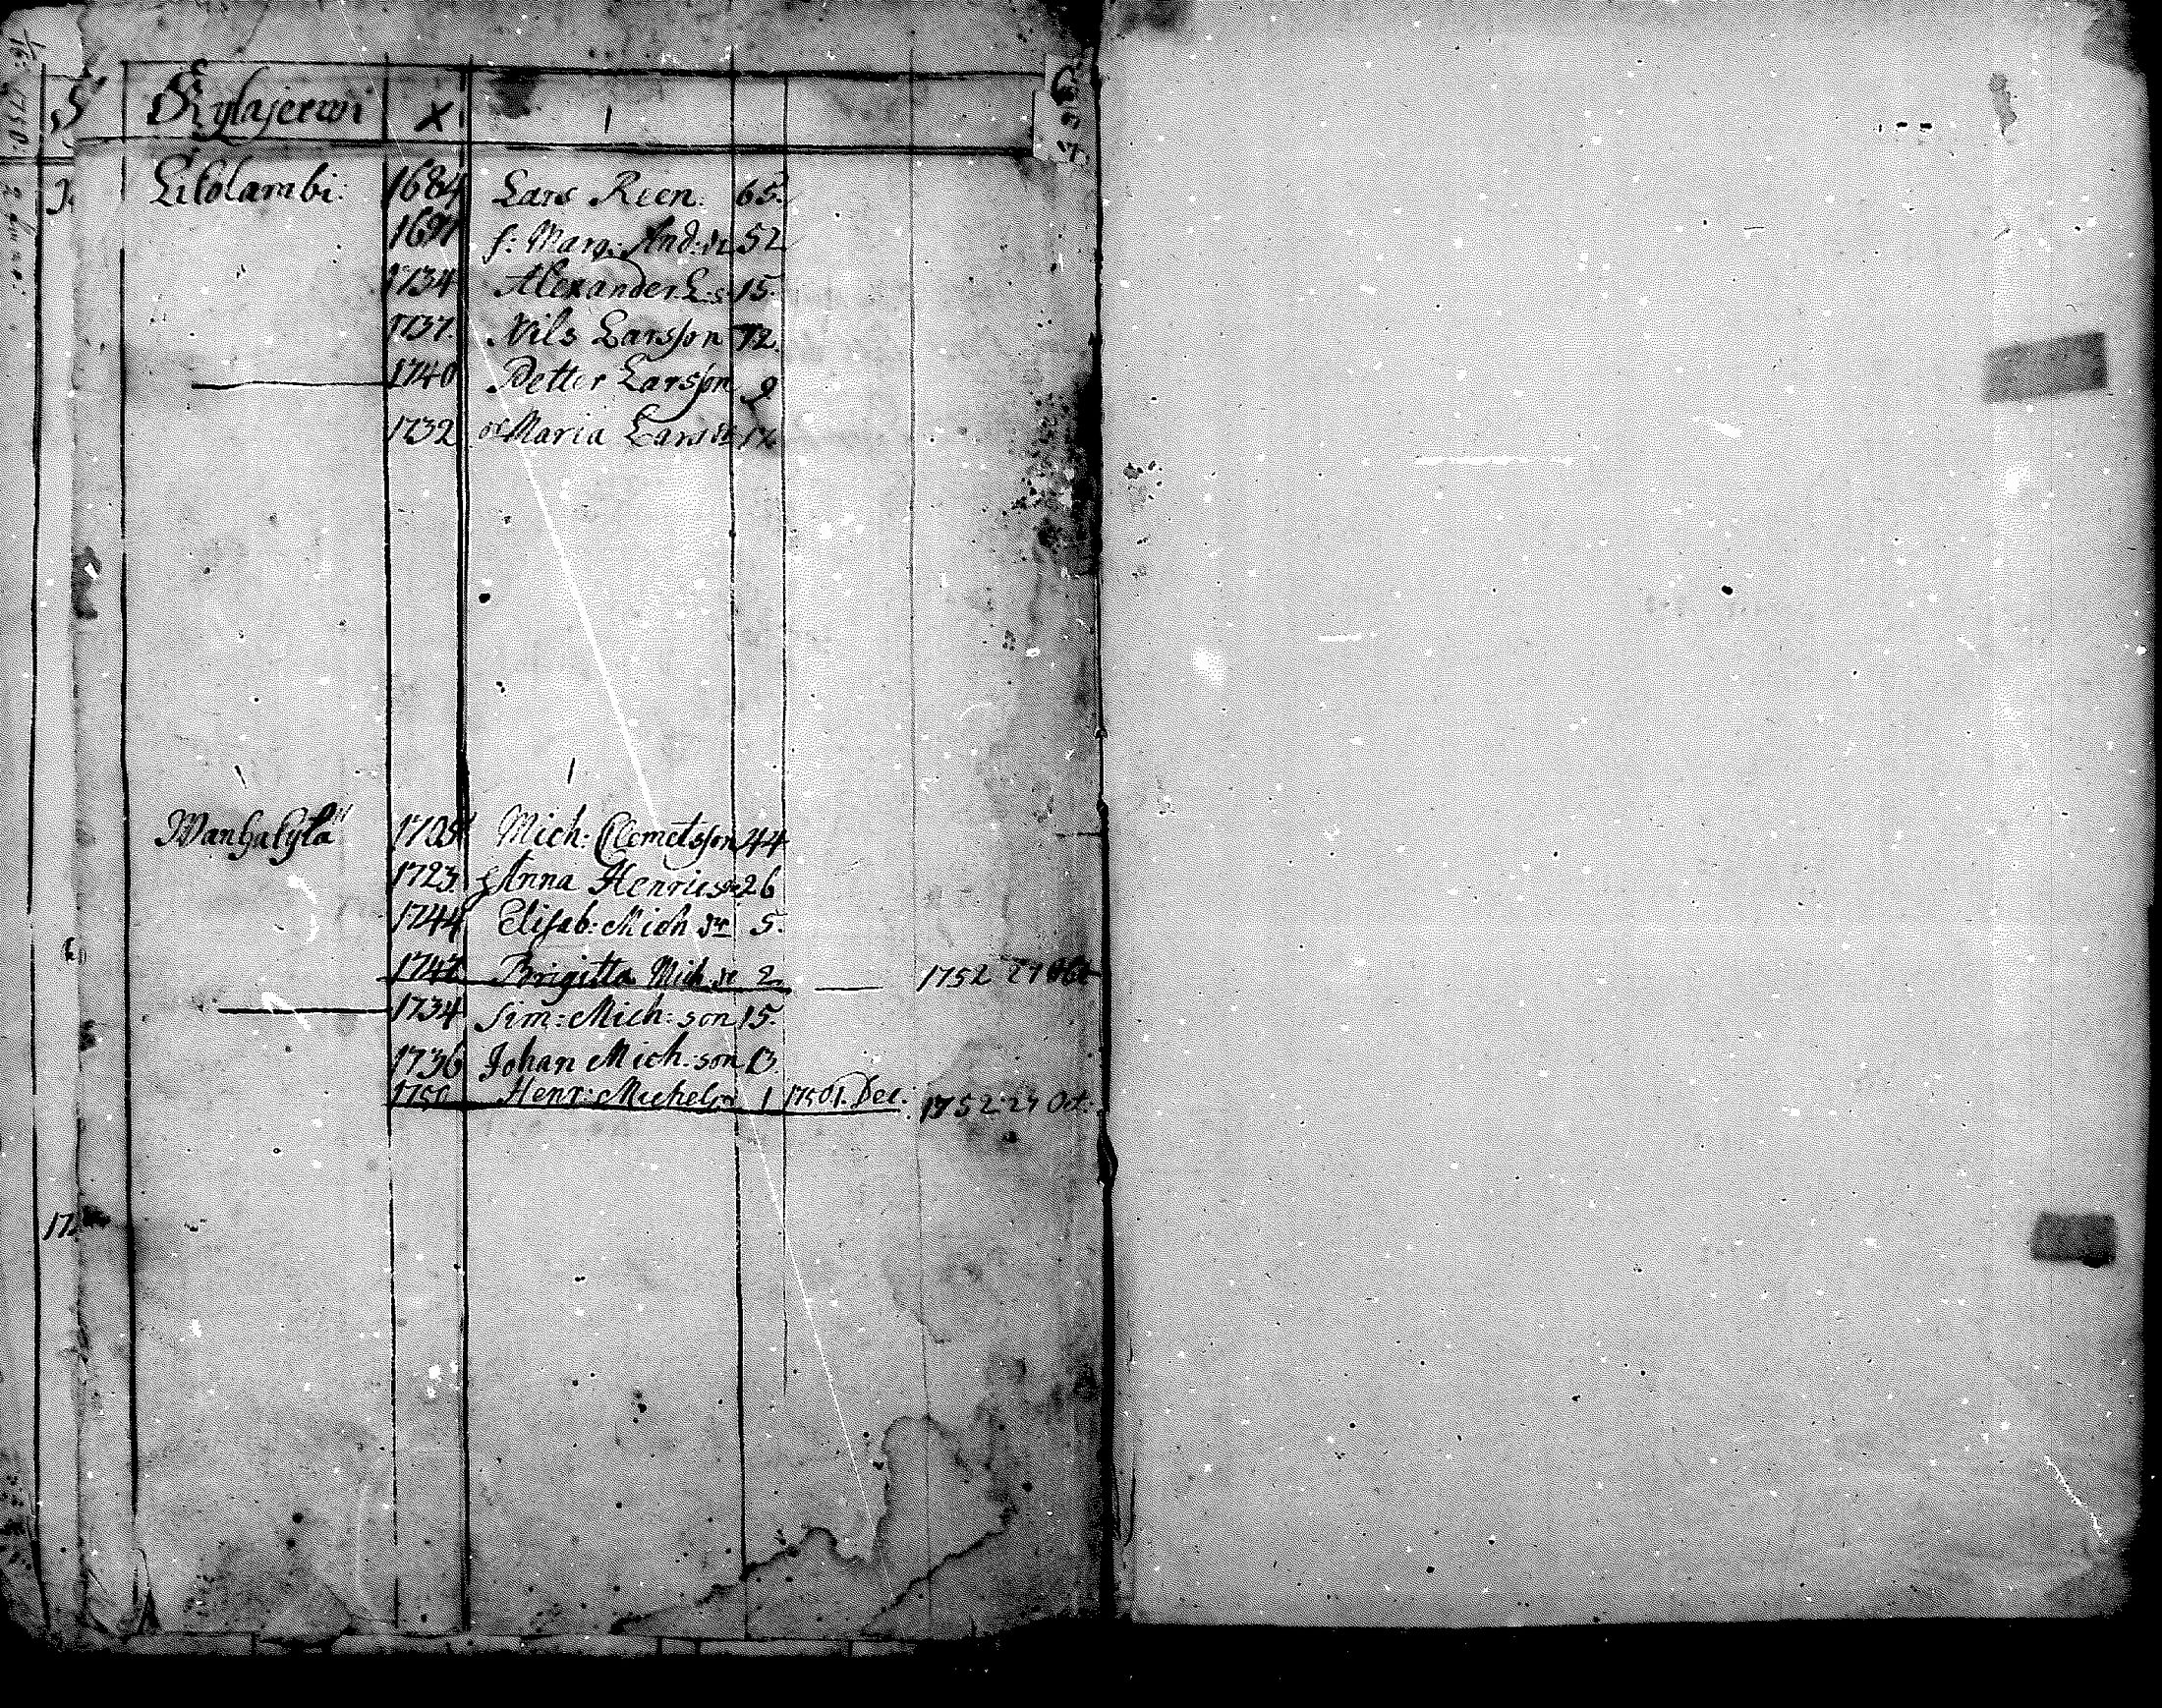 Kylajerwi x
Lilolambi: 1684 Lars Reen: 65.
1697 f: Marg: And: dr 52
1734 Alexander L: s: 15.
1737. Nils Larsson 12.
1740 Petter Larsson 9
1732 Maria Lars dr 17.
Wanhakylä 1705 Mich: Clemetsson 44
1723. Anna Henrics dr 26
1744 Elisab: Mich dr 5.
1747 Brigitta Mich dr 2 1752 27 Oct
1734 Sim: Mich: son 15.
1736 Johan Mich: son 13.
1750 Henr: Michels 1 1750 1. Dec: 1752 27 Oct: